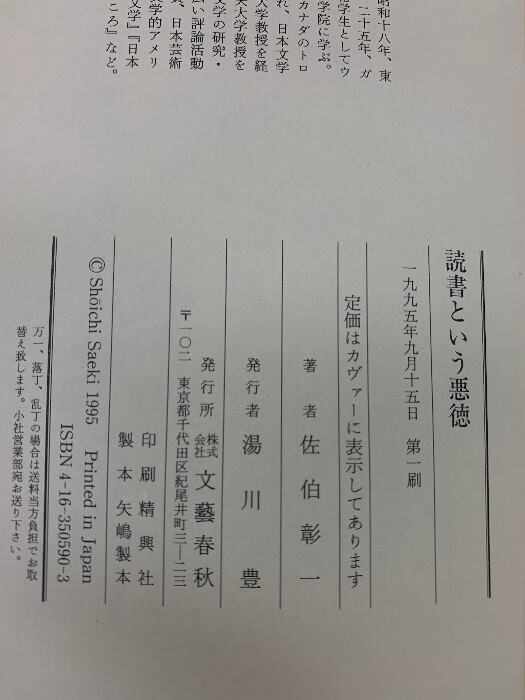 昭和十八年、東
二十五年、ガ
学生としてウ
学院に学ぶ。
カナダのトロ
れ、日本文学
大学教授を経
大学教授を
文学の研究・
い評論活動
、日本芸術
学的アメリ
文学』『日本
ころ』など。
読書という悪徳
一九九五年九月十五日　第一刷
定価はカヴァーに表示してあります
著者　佐伯彰一
発行者　湯川　豊
発行所　株式会社　文藝春秋
〒一〇二　東京都千代田区紀尾井町三―二三
印刷　精興社
製本　矢嶋製本
© Shōichi Saeki 1995　Printed in Japan
ISBN 4-16-350590-3
万一、落丁、乱丁の場合は送料当方負担でお取
替え致します。小社営業部宛お送り下さい。